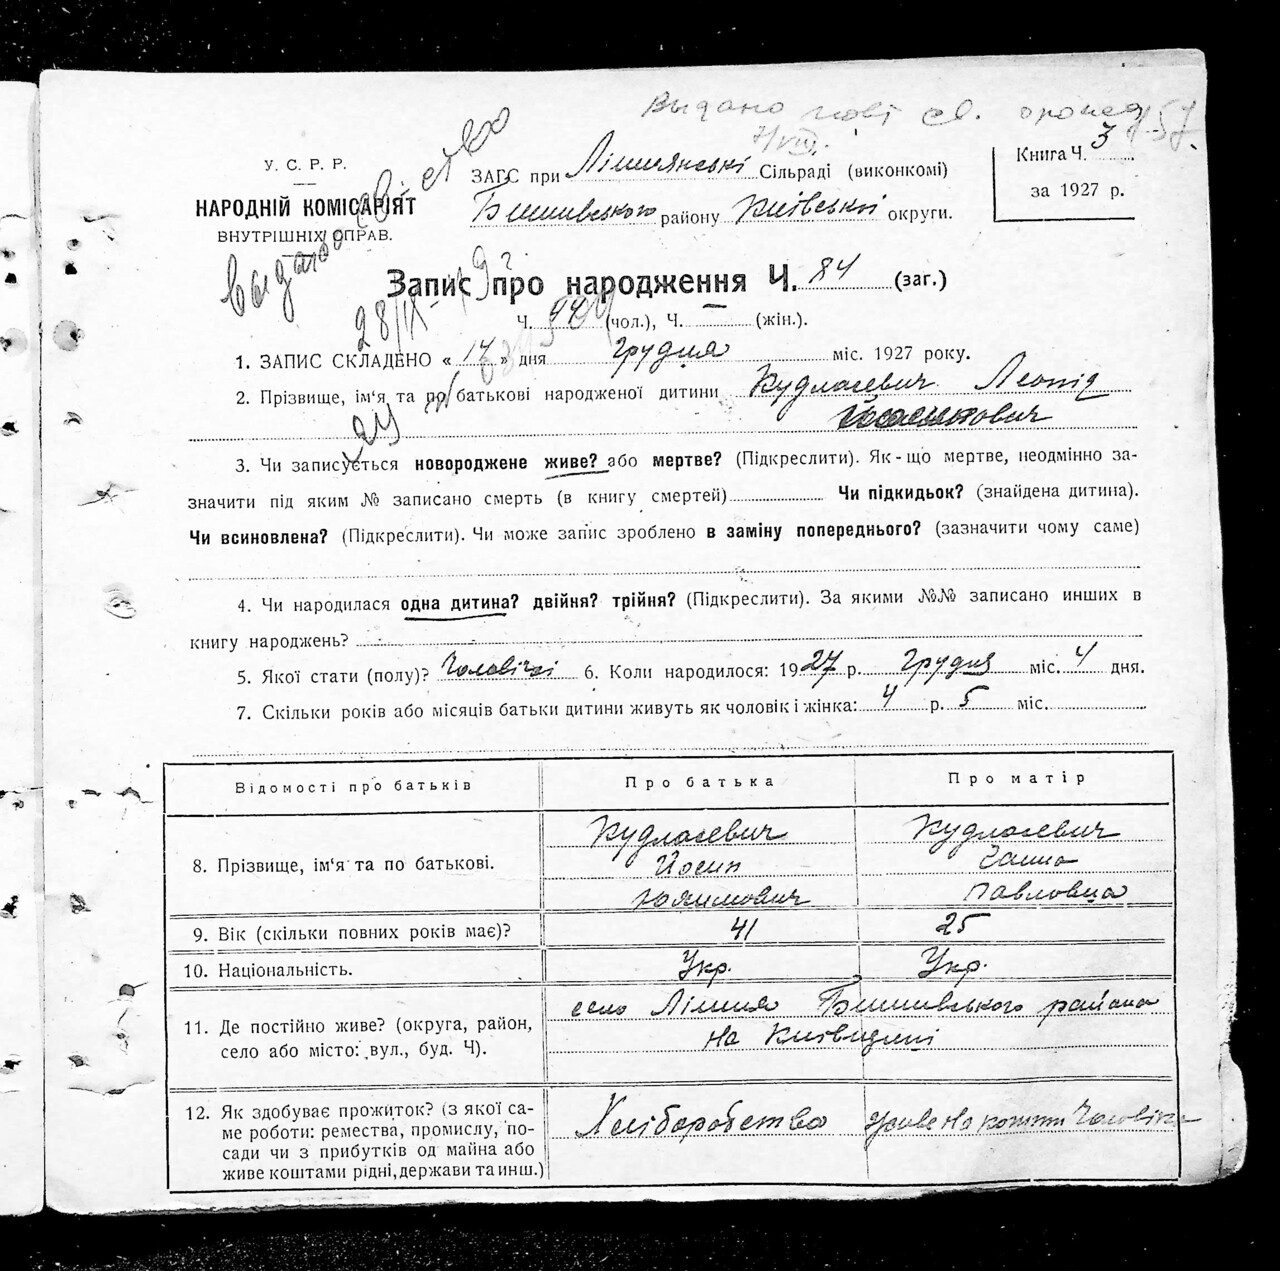 Выдано св.
У. С. Р. Р.
НАРОДНІЙ КОМІСАРІЯТ
ВНУТРІШНІХ СПРАВ.
Выдано
ЗАГС при Лишнянські Сільраді (виконкомі)
Бишівського району Київської округи.
Книга Ч. 3
за 1927 р.
Запис про народження Ч. 84 (заг.)
Ч. 44 (чол.), Ч. — (жін.).
1. ЗАПИС СКЛАДЕНО « 17 » дня грудня міс. 1927 року.
2. Прізвище, ім'я та по батькові народженої дитини Кудласевич Леонід
3. Чи записується новороджене живе? або мертве? (Підкреслити). Як-що мертве, неодмінно за-
значити під яким № записано смерть (в книгу смертей) Чи підкидьок? (знайдена дитина).
Чи всиновлена? (Підкреслити). Чи може запис зроблено в заміну попереднього? (зазначити чому саме)
4. Чи народилася одна дитина? двійня? трійня? (Підкреслити). За якими №№ записано инших в
книгу народжень?
5. Якої стати (полу)? Чоловічі 6. Коли народилося: 1927 р. Грудня міс. 4 дня.
7. Скільки років або місяців батьки дитини живуть як чоловік і жінка: 4 р. 5 міс.
Відомості про батьків Про батька Про матір
8. Прізвище, ім'я та по батькові. Кудласевич Йосип Юхимович Кудласевич Ганна Павловна
9. Вік (скільки повних років має)? 41 25
10. Національність. Укр. Укр.
11. Де постійно живе? (округа, район,
село або місто: вул., буд. Ч).
село Лишня Бишівського района
на Київщині
12. Як здобуває прожиток? (з якої са-
ме роботи: ремества, промислу, по-
сади чи з прибутків од майна або
живе коштами рідні, держави та инш.)
Хліборобство живе на кошти чоловіка